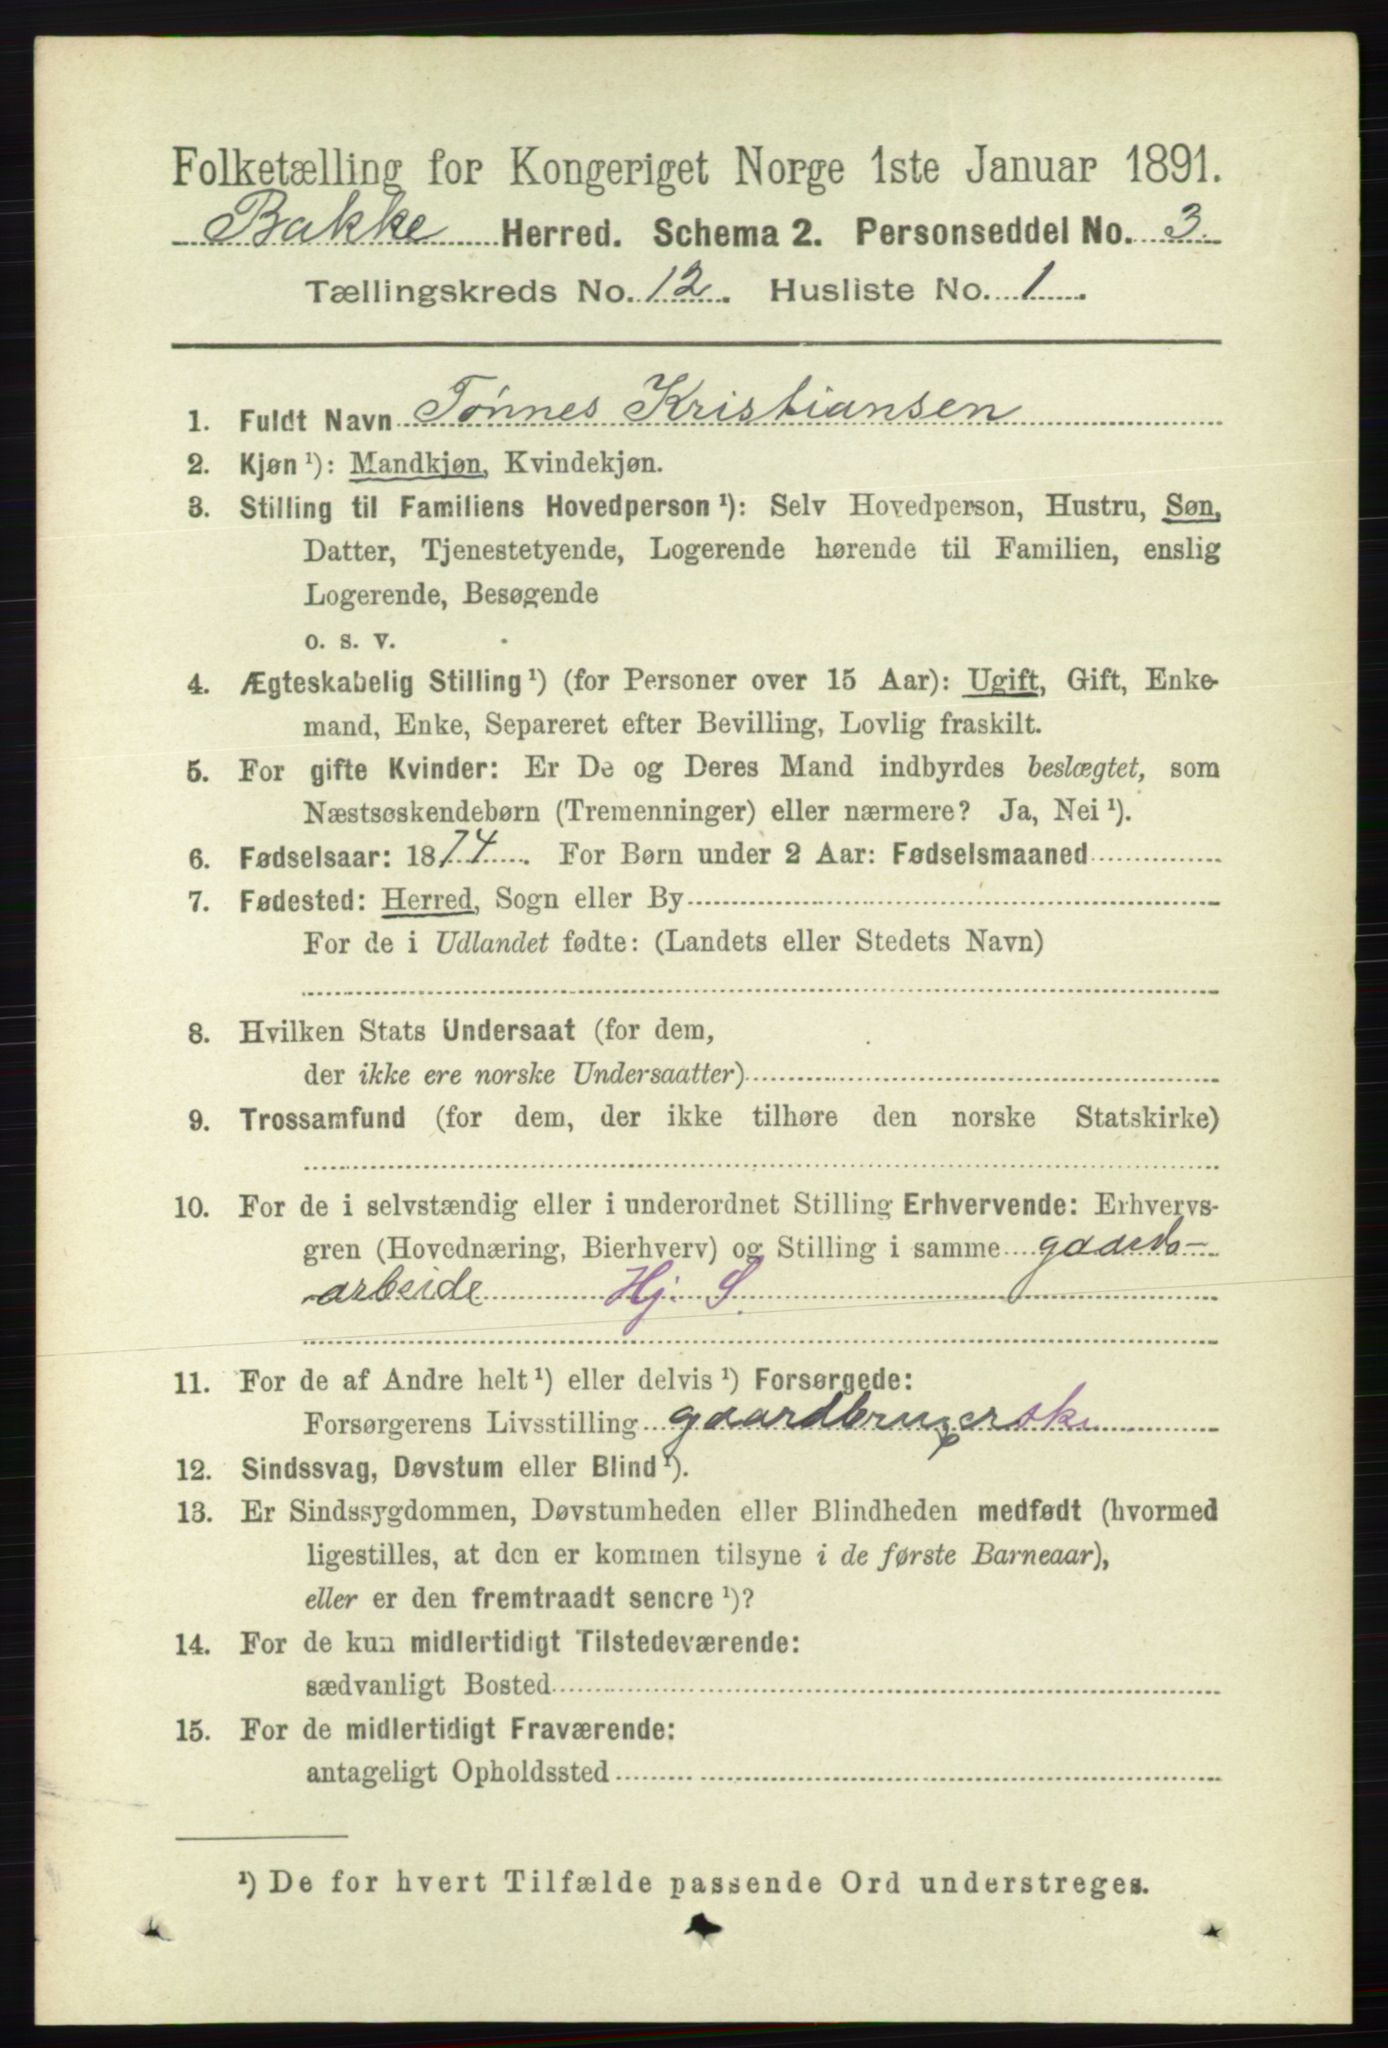 Folketælling for Kongeriget Norge 1ste Januar 1891.
Bakke Herred. Schema 2. Personseddel No. 3.
Tællingskreds No. 12. Husliste No. 1.
1. Fuldt Navn Tønnes Kristiansen
2. Kjøn ¹): Mandkjøn, Kvindekjøn.
3. Stilling til Familiens Hovedperson ¹): Selv Hovedperson, Hustru, Søn,
Datter, Tjenestetyende, Logerende hørende til Familien, enslig
Logerende, Besøgende
o. s. v.
4. Ægteskabelig Stilling ¹) (for Personer over 15 Aar): Ugift, Gift, Enke-
mand, Enke, Separeret efter Bevilling, Lovlig fraskilt.
5. For gifte Kvinder: Er De og Deres Mand indbyrdes beslægtet, som
Næstsøskendebørn (Tremenninger) eller nærmere? Ja, Nei ¹).
6. Fødselsaar: 1874. For Børn under 2 Aar: Fødselsmaaned
7. Fødested: Herred, Sogn eller By
For de i Udlandet fødte: (Landets eller Stedets Navn)
8. Hvilken Stats Undersaat (for dem,
der ikke ere norske Undersaatter)
9. Trossamfund (for dem, der ikke tilhøre den norske Statskirke)
10. For de i selvstændig eller i underordnet Stilling Erhvervende: Erhvervs-
gren (Hovednæring, Bierhverv) og Stilling i samme gaards-
arbeide Hj. S.
11. For de af Andre helt ¹) eller delvis ¹) Forsørgede:
Forsørgerens Livsstilling gaardbrugerske
12. Sindssvag, Døvstum eller Blind ¹).
13. Er Sindssygdommen, Døvstumheden eller Blindheden medfødt (hvormed
ligestilles, at den er kommen tilsyne i de første Barneaar),
eller er den fremtraadt senere ¹)?
14. For de kun midlertidigt Tilstedeværende:
sædvanligt Bosted
15. For de midlertidigt Fraværende:
antageligt Opholdssted
¹) De for hvert Tilfælde passende Ord understreges.